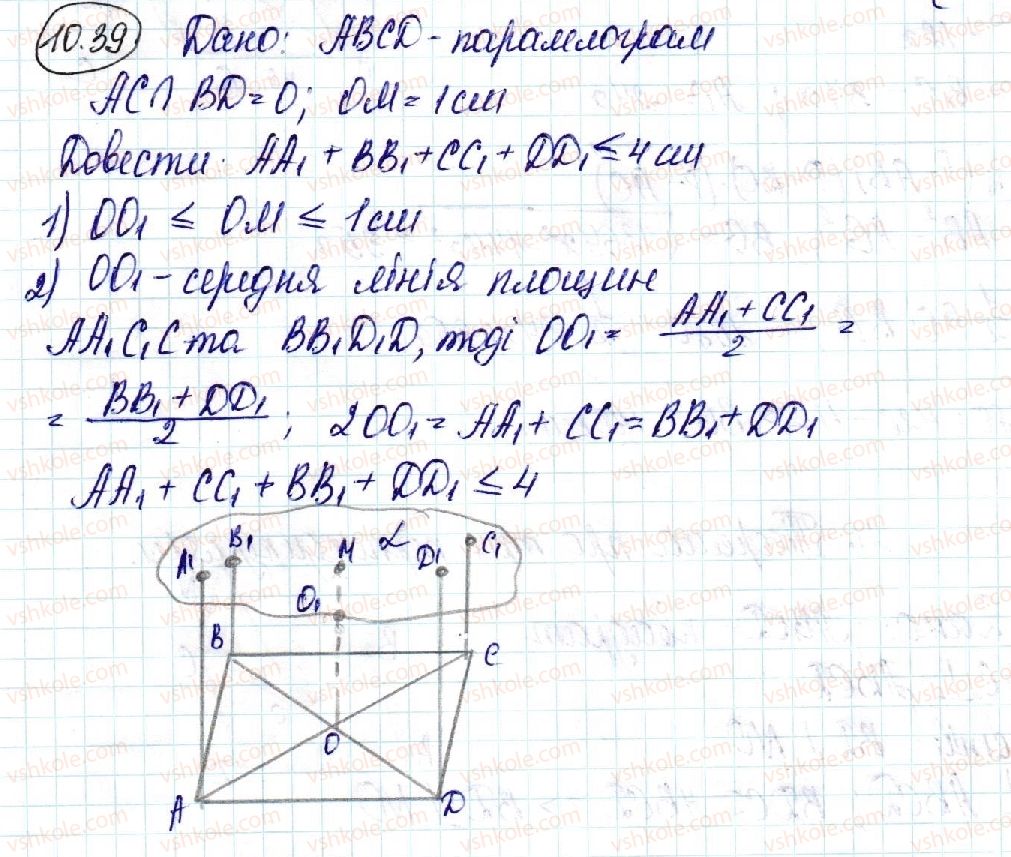 10.39 Дано: ABCD - парамлограм
AC∩BD=O; OM=1см
Довести: AA₁+BB₁+CC₁+DD₁≤4см
1) OO₁ ≤ OM ≤ 1см
2) OO₁ - середня лінія площин
AA₁C₁C та BB₁D₁D, тоді OO₁ = (AA₁+CC₁)/2 =
= (BB₁+DD₁)/2; 2OO₁ = AA₁+CC₁=BB₁+DD₁
AA₁+CC₁+BB₁+DD₁≤4
A₁ B₁ M α D₁ C₁
O₁
B C
O
A D